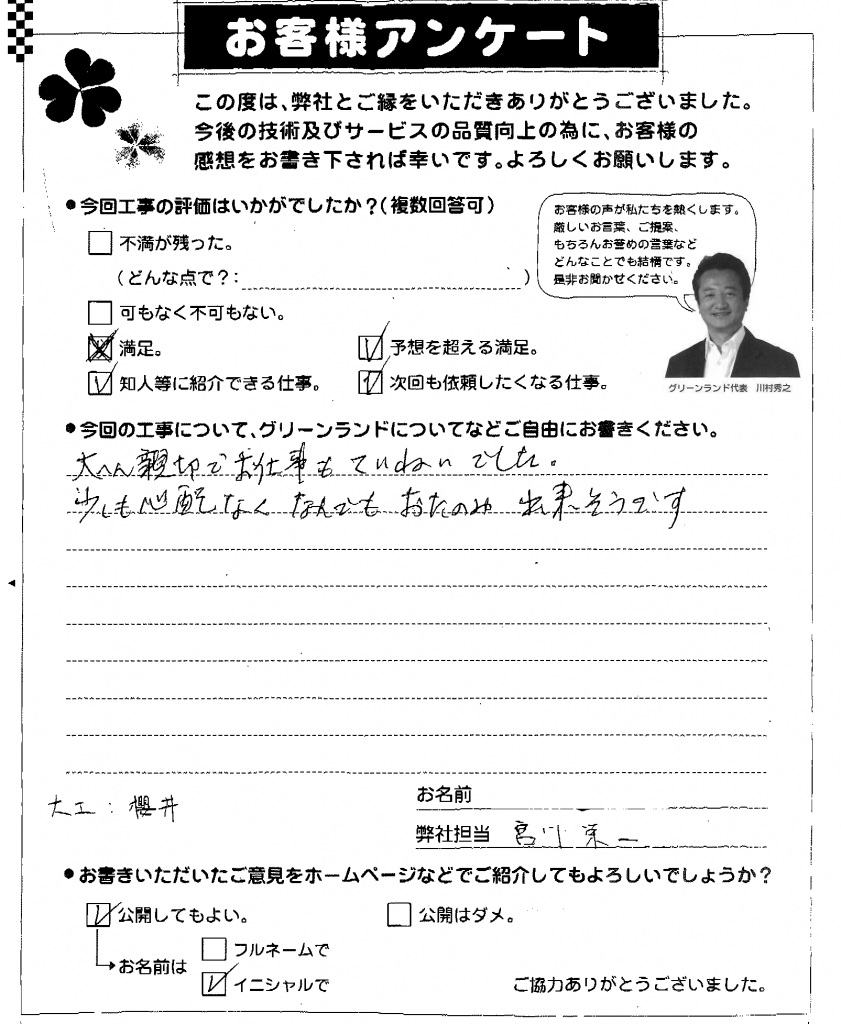 お客様アンケート
この度は、弊社とご縁をいただきありがとうございました。
今後の技術及びサービスの品質向上の為に、お客様の
感想をお書き下されば幸いです。よろしくお願いします。
●今回工事の評価はいかがでしたか？(複数回答可)
お客様の声が私たちを熱くします。
厳しいお言葉、ご提案、
もちろんお誉めの言葉など
どんなことでも結構です。
是非お聞かせください。
不満が残った。
(どんな点で？: )
可もなく不可もない。
満足。
予想を超える満足。
知人等に紹介できる仕事。
次回も依頼したくなる仕事。
グリーンランド代表 川村秀之
●今回の工事について、グリーンランドについてなどご自由にお書きください。
大へん親切でお仕事もていねいでした。
少しも心配なくなんでもおたのみ出来そうです
お名前
大工：櫻井
弊社担当 宮川 栄一
●お書きいただいたご意見をホームページなどでご紹介してもよろしいでしょうか？
公開してもよい。
公開はダメ。
お名前は
フルネームで
イニシャルで
ご協力ありがとうございました。